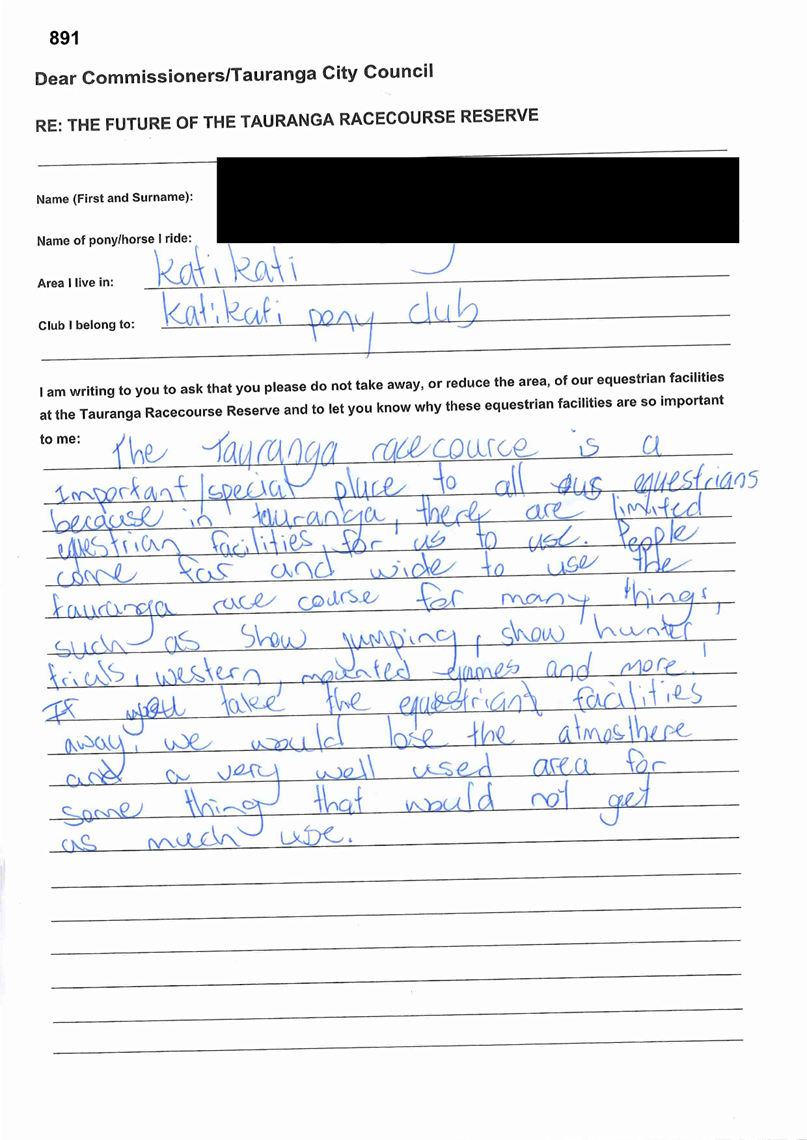 891
Dear Commissioners/Tauranga City Council
RE: THE FUTURE OF THE TAURANGA RACECOURSE RESERVE
Name (First and Surname):
Name of pony/horse I ride:
Area I live in: Katikati
Club I belong to: Katikati pony club
I am writing to you to ask that you please do not take away, or reduce the area, of our equestrian facilities
at the Tauranga Racecourse Reserve and to let you know why these equestrian facilities are so important
to me:
The Tauranga racecource is a
Important/special place to all us equestrians
because in tauranga, there are limited
equestrian facilities, for us to use. People
come far and wide to use the
tauranga race course for many things,
such as show jumping, show hunter,
trials, western, mounted games and more.
If you take the equestriant facilities
away, we would lose the atmosthere
and a very well used area for
some thing that would not get
as much use.